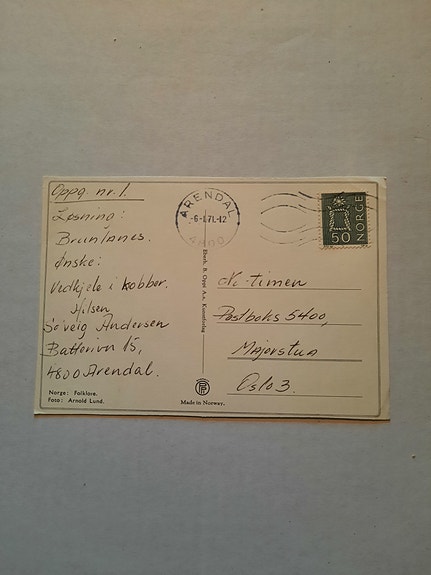 Oppg. nr. 1.
Løsning:
Brunlanes.
Ønske:
Vedkjele i kobber.
Hilsen
Solveig Andersen
Batterivn 15,
4800 Arendal.
Norge: Folklore.
Foto: Arnold Lund.
ARENDAL
-6-1.71.-12
4800
NORGE
50
Eberh. B. Oppi A.s. Kunstforlag
Made in Norway.
-timen
Postboks 5400,
Majorstua
Oslo 3.